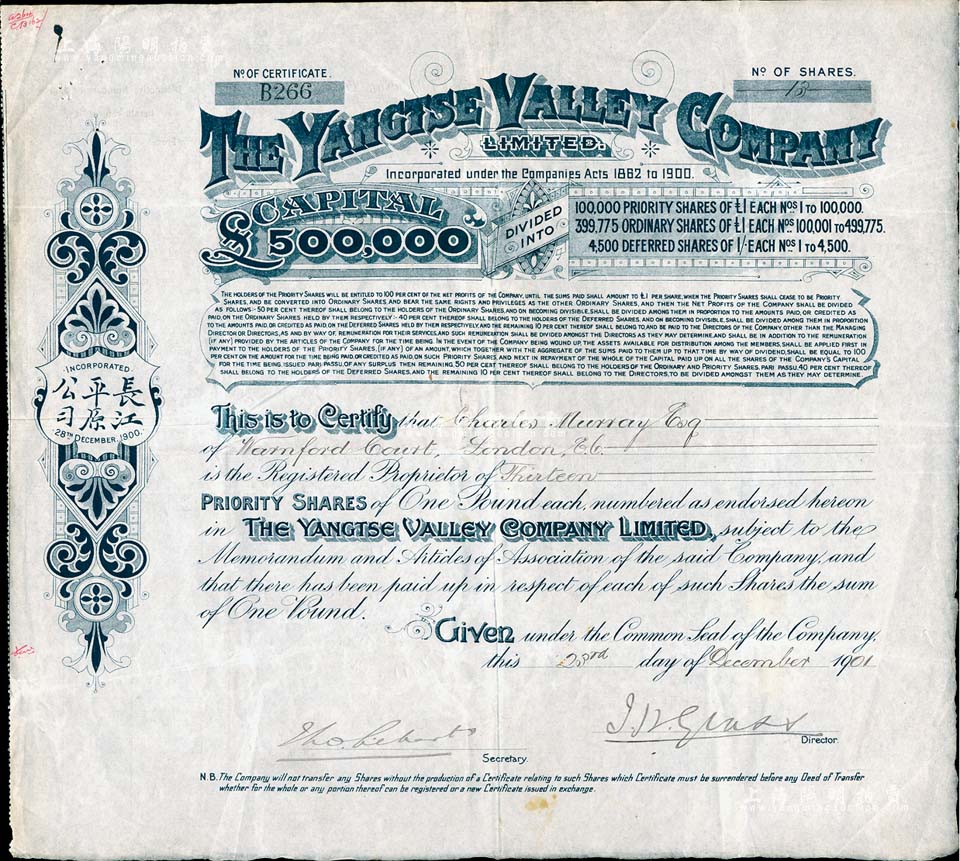 上海陽明拍賣
www.yangmingauction.com
No OF CERTIFICATE.
B266
No OF SHARES.
13
THE YANGTSE VALLEY COMPANY
LIMITED.
Incorporated under the Companies Acts 1862 to 1900.
CAPITAL
£500,000
DIVIDED INTO
100,000 PRIORITY SHARES OF £1 EACH Nos 1 TO 100,000.
399,775 ORDINARY SHARES OF £1 EACH Nos 100,001 TO 499,775.
4,500 DEFERRED SHARES OF 1/- EACH Nos 1 TO 4,500.
THE HOLDERS OF THE PRIORITY SHARES WILL BE ENTITLED TO 100 PER CENT OF THE NET PROFITS OF THE COMPANY, UNTIL THE SUMS PAID SHALL AMOUNT TO £1 PER SHARE, WHEN THE PRIORITY SHARES SHALL CEASE TO BE PRIORITY
SHARES, AND BE CONVERTED INTO ORDINARY SHARES, AND BEAR THE SAME RIGHTS AND PRIVILEGES AS THE OTHER ORDINARY SHARES, AND THEN THE NET PROFITS OF THE COMPANY SHALL BE DIVIDED
AS FOLLOWS:- 50 PER CENT THEREOF SHALL BELONG TO THE HOLDERS OF THE ORDINARY SHARES, AND ON BECOMING DIVISIBLE, SHALL BE DIVIDED AMONG THEM IN PROPORTION TO THE AMOUNTS PAID, OR CREDITED AS
PAID, ON THE ORDINARY SHARES HELD BY THEM RESPECTIVELY:- 40 PER CENT THEREOF SHALL BELONG TO THE HOLDERS OF THE DEFERRED SHARES, AND ON BECOMING DIVISIBLE, SHALL BE DIVIDED AMONG THEM IN PROPORTION
TO THE AMOUNTS PAID OR CREDITED AS PAID ON THE DEFERRED SHARES HELD BY THEM RESPECTIVELY, AND THE REMAINING 10 PER CENT THEREOF SHALL BELONG TO, AND BE PAID TO THE DIRECTORS OF THE COMPANY, OTHER THAN THE MANAGING
DIRECTOR OR DIRECTORS, AS AND BY WAY OF REMUNERATION FOR THEIR SERVICES, AND SUCH REMUNERATION SHALL BE DIVIDED AMONGST THE DIRECTORS AS THEY MAY DETERMINE, AND SHALL BE IN ADDITION TO THE REMUNERATION
(IF ANY) PROVIDED BY THE ARTICLES OF THE COMPANY FOR THE TIME BEING. IN THE EVENT OF THE COMPANY BEING WOUND UP, THE ASSETS AVAILABLE FOR DISTRIBUTION AMONG THE MEMBERS, SHALL BE APPLIED FIRST IN
PAYMENT TO THE HOLDERS OF THE PRIORITY SHARES, (IF ANY) OF AN AMOUNT, WHICH TOGETHER WITH THE AGGREGATE OF THE SUMS PAID TO THEM UP TO THAT TIME BY WAY OF DIVIDEND, SHALL BE EQUAL TO 100
PER CENT ON THE AMOUNT FOR THE TIME BEING PAID, OR CREDITED AS PAID, ON SUCH PRIORITY SHARES, AND NEXT IN REPAYMENT OF THE WHOLE OF THE CAPITAL PAID UP ON ALL THE SHARES OF THE COMPANY'S CAPITAL
FOR THE TIME BEING ISSUED PARI PASSU, OF ANY SURPLUS THEN REMAINING, 50 PER CENT THEREOF SHALL BELONG TO THE HOLDERS OF THE ORDINARY AND PRIORITY SHARES, PARI PASSU, 40 PER CENT THEREOF
SHALL BELONG TO THE HOLDERS OF THE DEFERRED SHARES, AND THE REMAINING 10 PER CENT THEREOF SHALL BELONG TO THE DIRECTORS, TO BE DIVIDED AMONGST THEM AS THEY MAY DETERMINE.
INCORPORATED
長江
平原
公司
28TH DECEMBER, 1900.
This is to Certify that Charles Murray Esq
of Warnford Court, London, E.C.
is the Registered Proprietor of Thirteen
PRIORITY SHARES of One Pound each, numbered as endorsed hereon
in THE YANGTSE VALLEY COMPANY LIMITED, subject to the
Memorandum and Articles of Association of the said Company, and
that there has been paid up in respect of each of such Shares the sum
of One Pound.
Given under the Common Seal of the Company,
this 23rd day of December 1901
Director.
Secretary.
N.B. The Company will not transfer any Shares without the production of a Certificate relating to such Shares which Certificate must be surrendered before any Deed of Transfer
whether for the whole or any portion thereof can be registered or a new Certificate issued in exchange.